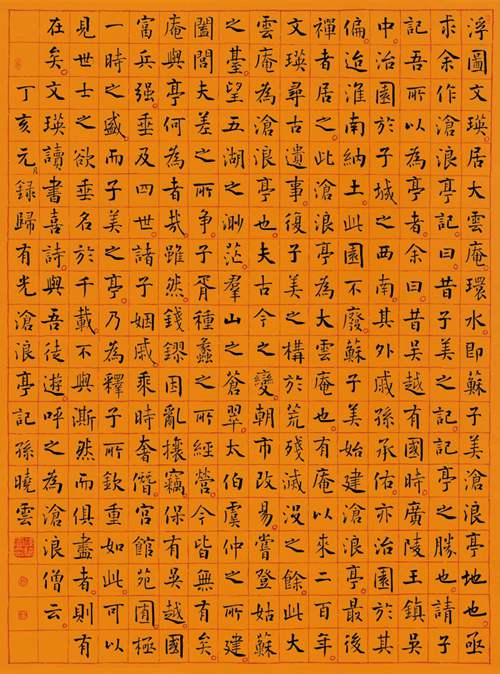 浮圖文瑛居大雲庵環水即蘇子美滄浪亭地也亟
求余作滄浪亭記曰昔子美之記記亭之勝也請子
記吾所以為亭者余曰昔吳越有國時廣陵王鎮吳
中治園於子城之西南其外戚孫承佑亦治園於其
偏迨淮南納土此園不廢蘇子美始建滄浪亭最後
禪者居之此滄浪亭為大雲庵也有庵以來二百年
文瑛尋古遺事復子美之構於荒殘滅沒之餘此大
雲庵為滄浪亭也夫古今之變朝市改易嘗登姑蘇
之臺望五湖之渺茫羣山之蒼翠太伯虞仲之所建
闔閭夫差之所爭子胥種蠡之所經營今皆無有矣
庵與亭何為者哉雖然錢鏐因亂攘竊保有吳越國
富兵强垂及四世諸子姻戚乘時奢僭宮館苑囿極
一時之盛而子美之亭乃為釋子所欽重如此可以
見世士之欲垂名於千載不與澌然而俱盡者則有
在矣文瑛讀書喜詩與吾徒遊呼之為滄浪僧云
丁亥元月錄歸有光滄浪亭記孫曉雲